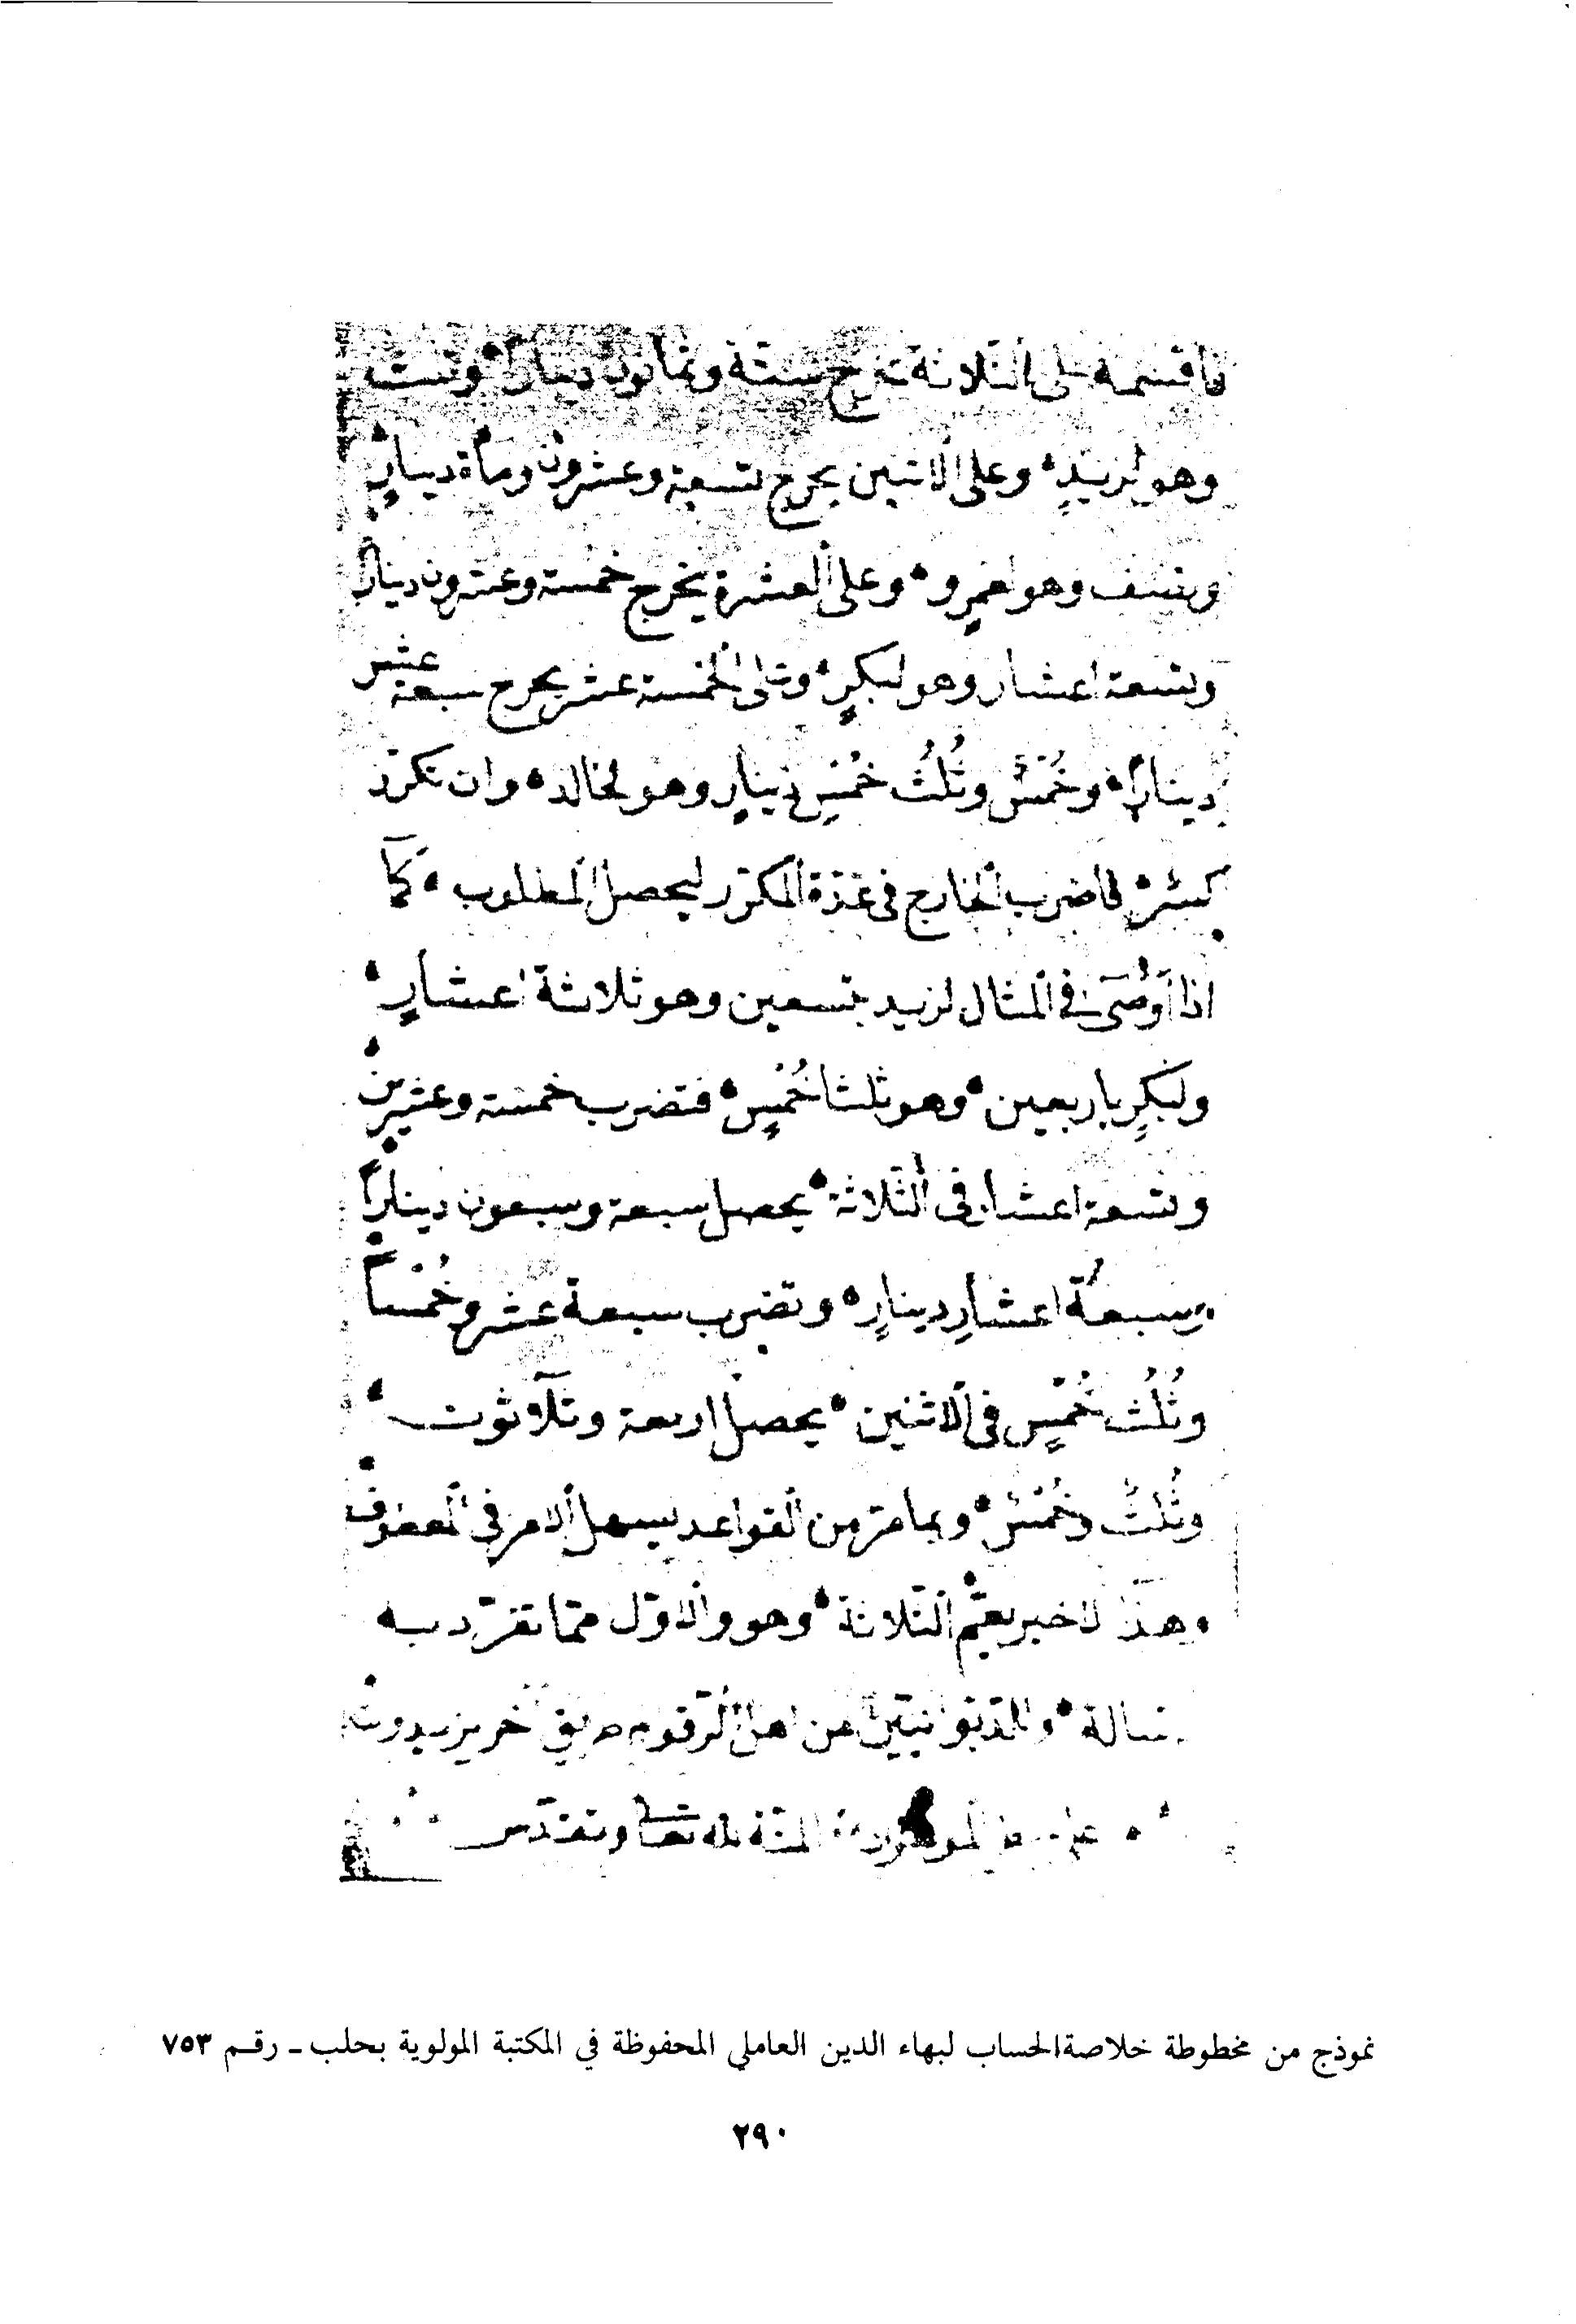 فاقسمه على الثلاثة تخرج ستة وثمانون ديناراً وثلث
وهو لزيدٍ وعلى الاثنين يخرج تسعة وعشرون ومأة دينارٍ
ونصف وهو لعمرٍو وعلى العشرة يخرج خمسة وعشرون ديناراً
وتسعة اعشار وهو لبكرٍ وعلى الخمسة عشر يخرج سبعة عشر
ديناراً وخُمسٌ وثُلُثُ خُمسِ دينارٍ وهو لخالد وان تكرّر
كسرٌ فاضرب الخارج في عدّة المكرّر ليحصل المطلوب كما
اذا أوصى في المثال لزيد بتسعين وهو ثلاثة اعشارٍ
ولبكرٍ باربعين وهو ثلثا خُمسٍ فتضرب خمسة وعشرين
وتسعة اعشار في الثّلاثة يحصل سبعة وسبعون ديناراً
وسبعة اعشارِ دينارٍ وتضرب سبعة عشر وخُمساً
وثُلُث خُمسٍ في الاثنين يحصل اربعة وثلاثون
وثُلثٌ وخُمسٌ وبما مرّ من القواعد يسهل الامر في المعطوف
وهذا الاخير يعمّ الثّلاثة وهو والاوّل ممّا تفرّد به
الرسالة من اهل الرقوم طريق
المنّة لله تعالى وتقدّس
نموذج من مخطوطة خلاصة الحساب لبهاء الدين العاملي المحفوظة في المكتبة المولوية بحلب ـ رقم ٧٥٣
٢٩٠